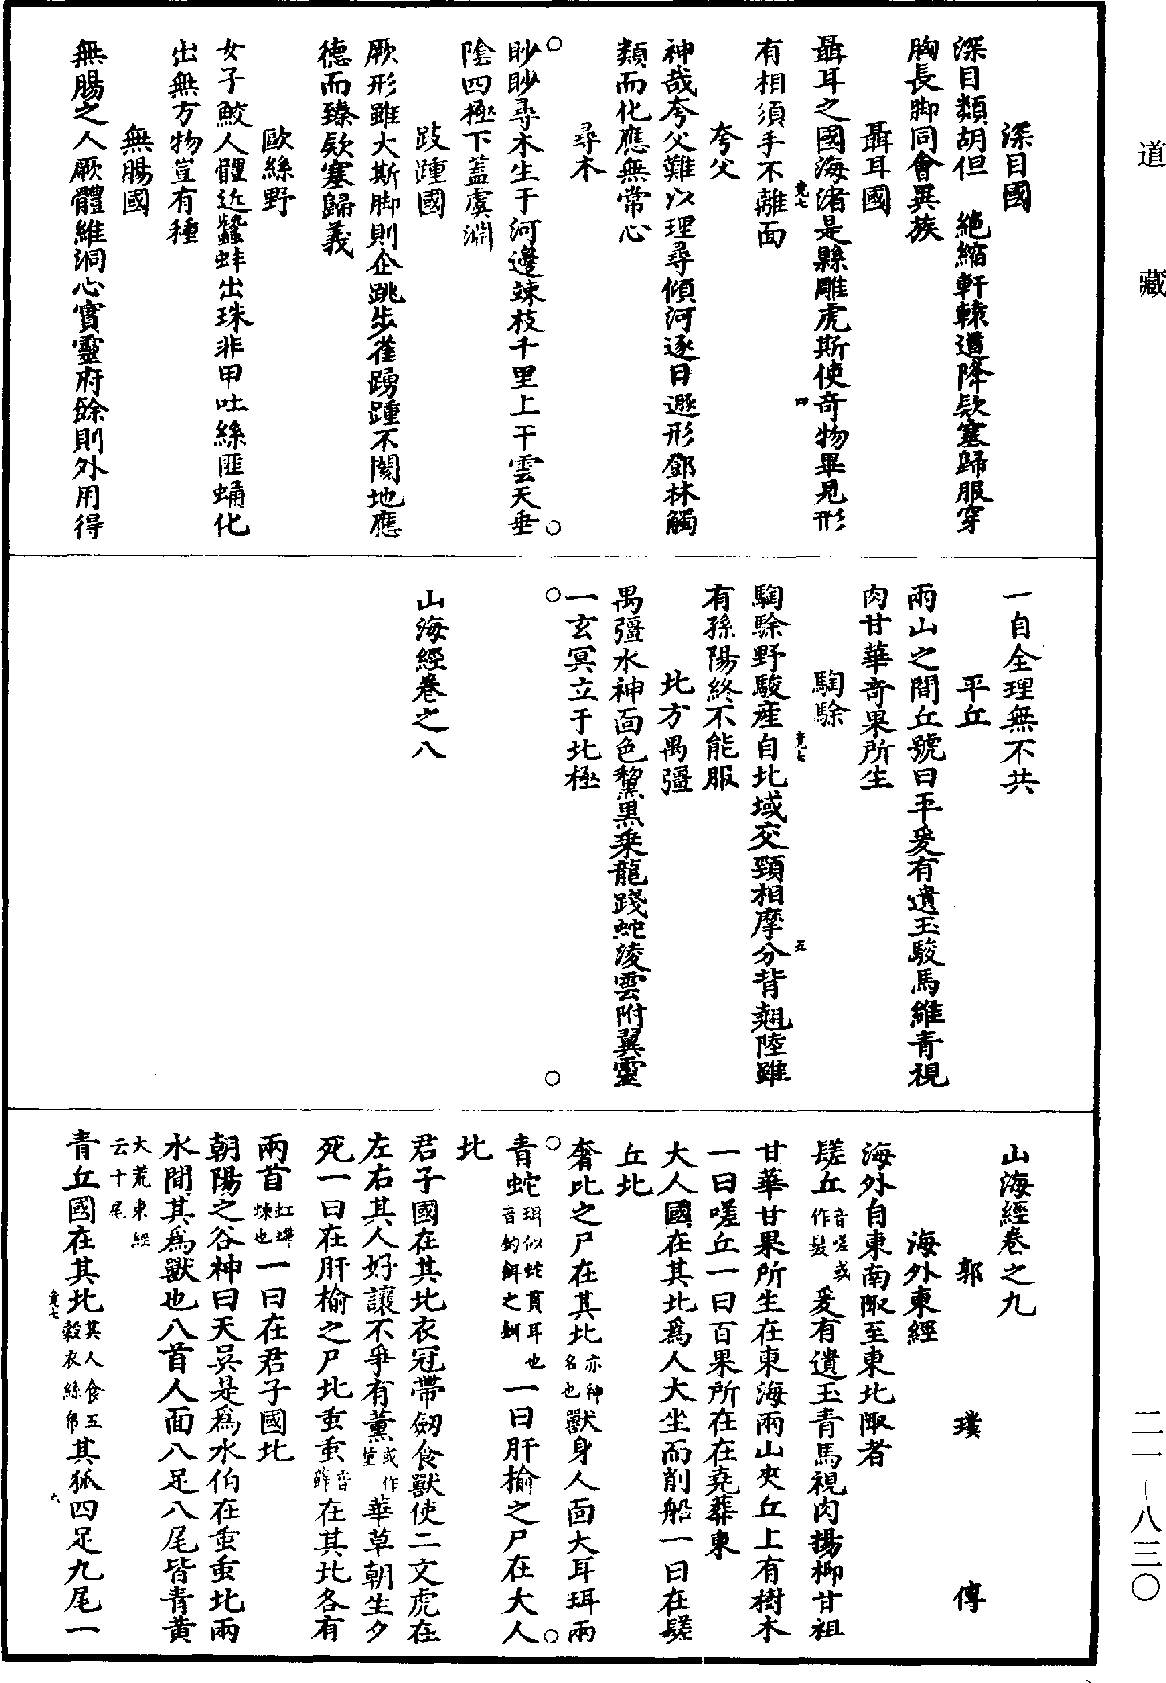 道藏
深目國
深目類胡但　絶縮軒轅道降欵塞歸服穿
胸長脚同會異族
聶耳國
聶耳之國海渚是縣雕虎斯使奇物畢見形
有相須手不離面
夸父
神哉夸父難以理尋傾河逐日遯形鄧林觸
類而化應無常心
尋木
眇眇尋木生于河邊竦枝千里上干雲天垂
陰四極下蓋虞淵
跂踵國
厥形雖大斯脚則企跳步雀踴踵不閡地應
德而臻欵塞歸義
歐絲野
女子鮫人體近蠶蚌出珠非甲吐絲匪蛹化
出無方物豈有種
無腸國
無腸之人厥體維洞心實靈府餘則外用得
一自全理無不共
平丘
兩山之間丘號曰平爰有遺玉駿馬維青視
肉甘華奇果所生
騊駼
騊駼野駿産自北域交頸相摩分背翹陸雖
有孫陽終不能服
北方禺彊
禺彊水神面色黧黑乘龍踐蛇淩雲附翼靈
一玄冥立于北極
山海經卷之八
山海經卷之九
郭璞傳
海外東經
海外自東南陬至東北陬者
髽丘音嗟或作髮爰有遺玉青馬視肉揚柳甘祖
甘華甘果所生在東海兩山夾丘上有樹木
一曰嗟丘一曰百果所在在堯葬東
大人國在其北爲人大坐而削船一曰在髽
丘北
奢比之尸在其北亦神名也獸身人面大耳珥兩
青蛇珥似蛇貫耳也音釣餌之餌一曰肝榆之尸在大人
北
君子國在其北衣冠帶劒食獸使二文虎在
左右其人好讓不爭有薰或作堇華草朝生夕
死一曰在肝榆之尸北䖝䖝音薛在其北各有
兩首虹蝀也一曰在君子國北
朝陽之谷神曰天吳是爲水伯在䖝䖝北兩
水間其爲獸也八首人面八足八尾皆青黄
大荒東經云十尾
青丘國在其北其人食五穀衣絲帛其狐四足九尾一
二一－八三〇